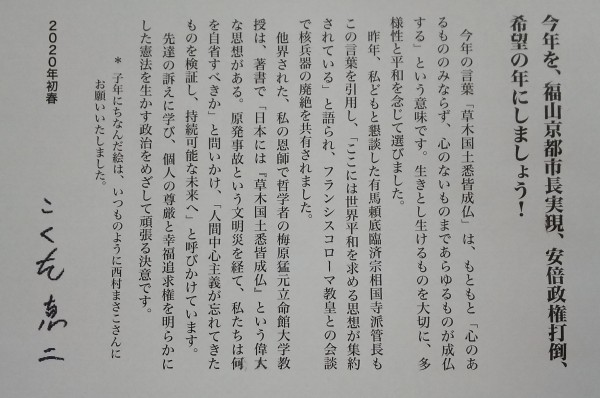 今年を、福山京都市長実現、安倍政権打倒、
希望の年にしましょう！
今年の言葉「草木国土悉皆成仏」は、もともと「心のあ
るもののみならず、心のないものまであらゆるものが成仏
する」という意味です。生きとし生けるものを大切に、多
様性と平和を念じて選びました。
昨年、私どもと懇談した有馬頼底臨済宗相国寺派管長も
この言葉を引用し、「ここには世界平和を求める思想が集約
されている」と語られ、フランシスコローマ教皇との会談
で核兵器の廃絶を共有されました。
他界された、私の恩師で哲学者の梅原猛元立命館大学教
授は、著書で「日本には『草木国土悉皆成仏』という偉大
な思想がある。原発事故という文明災を経て、私たちは何
を自省すべきか」と問いかけ、「人間中心主義が忘れてきた
ものを検証し、持続可能な未来へ」と呼びかけています。
先達の訴えに学び、個人の尊厳と幸福追求権を明らかに
した憲法を生かす政治をめざして頑張る決意です。
＊ 子年にちなんだ絵は、いつものように西村まさこさんに
お願いいたしました。
2020年初春
こくた恵二